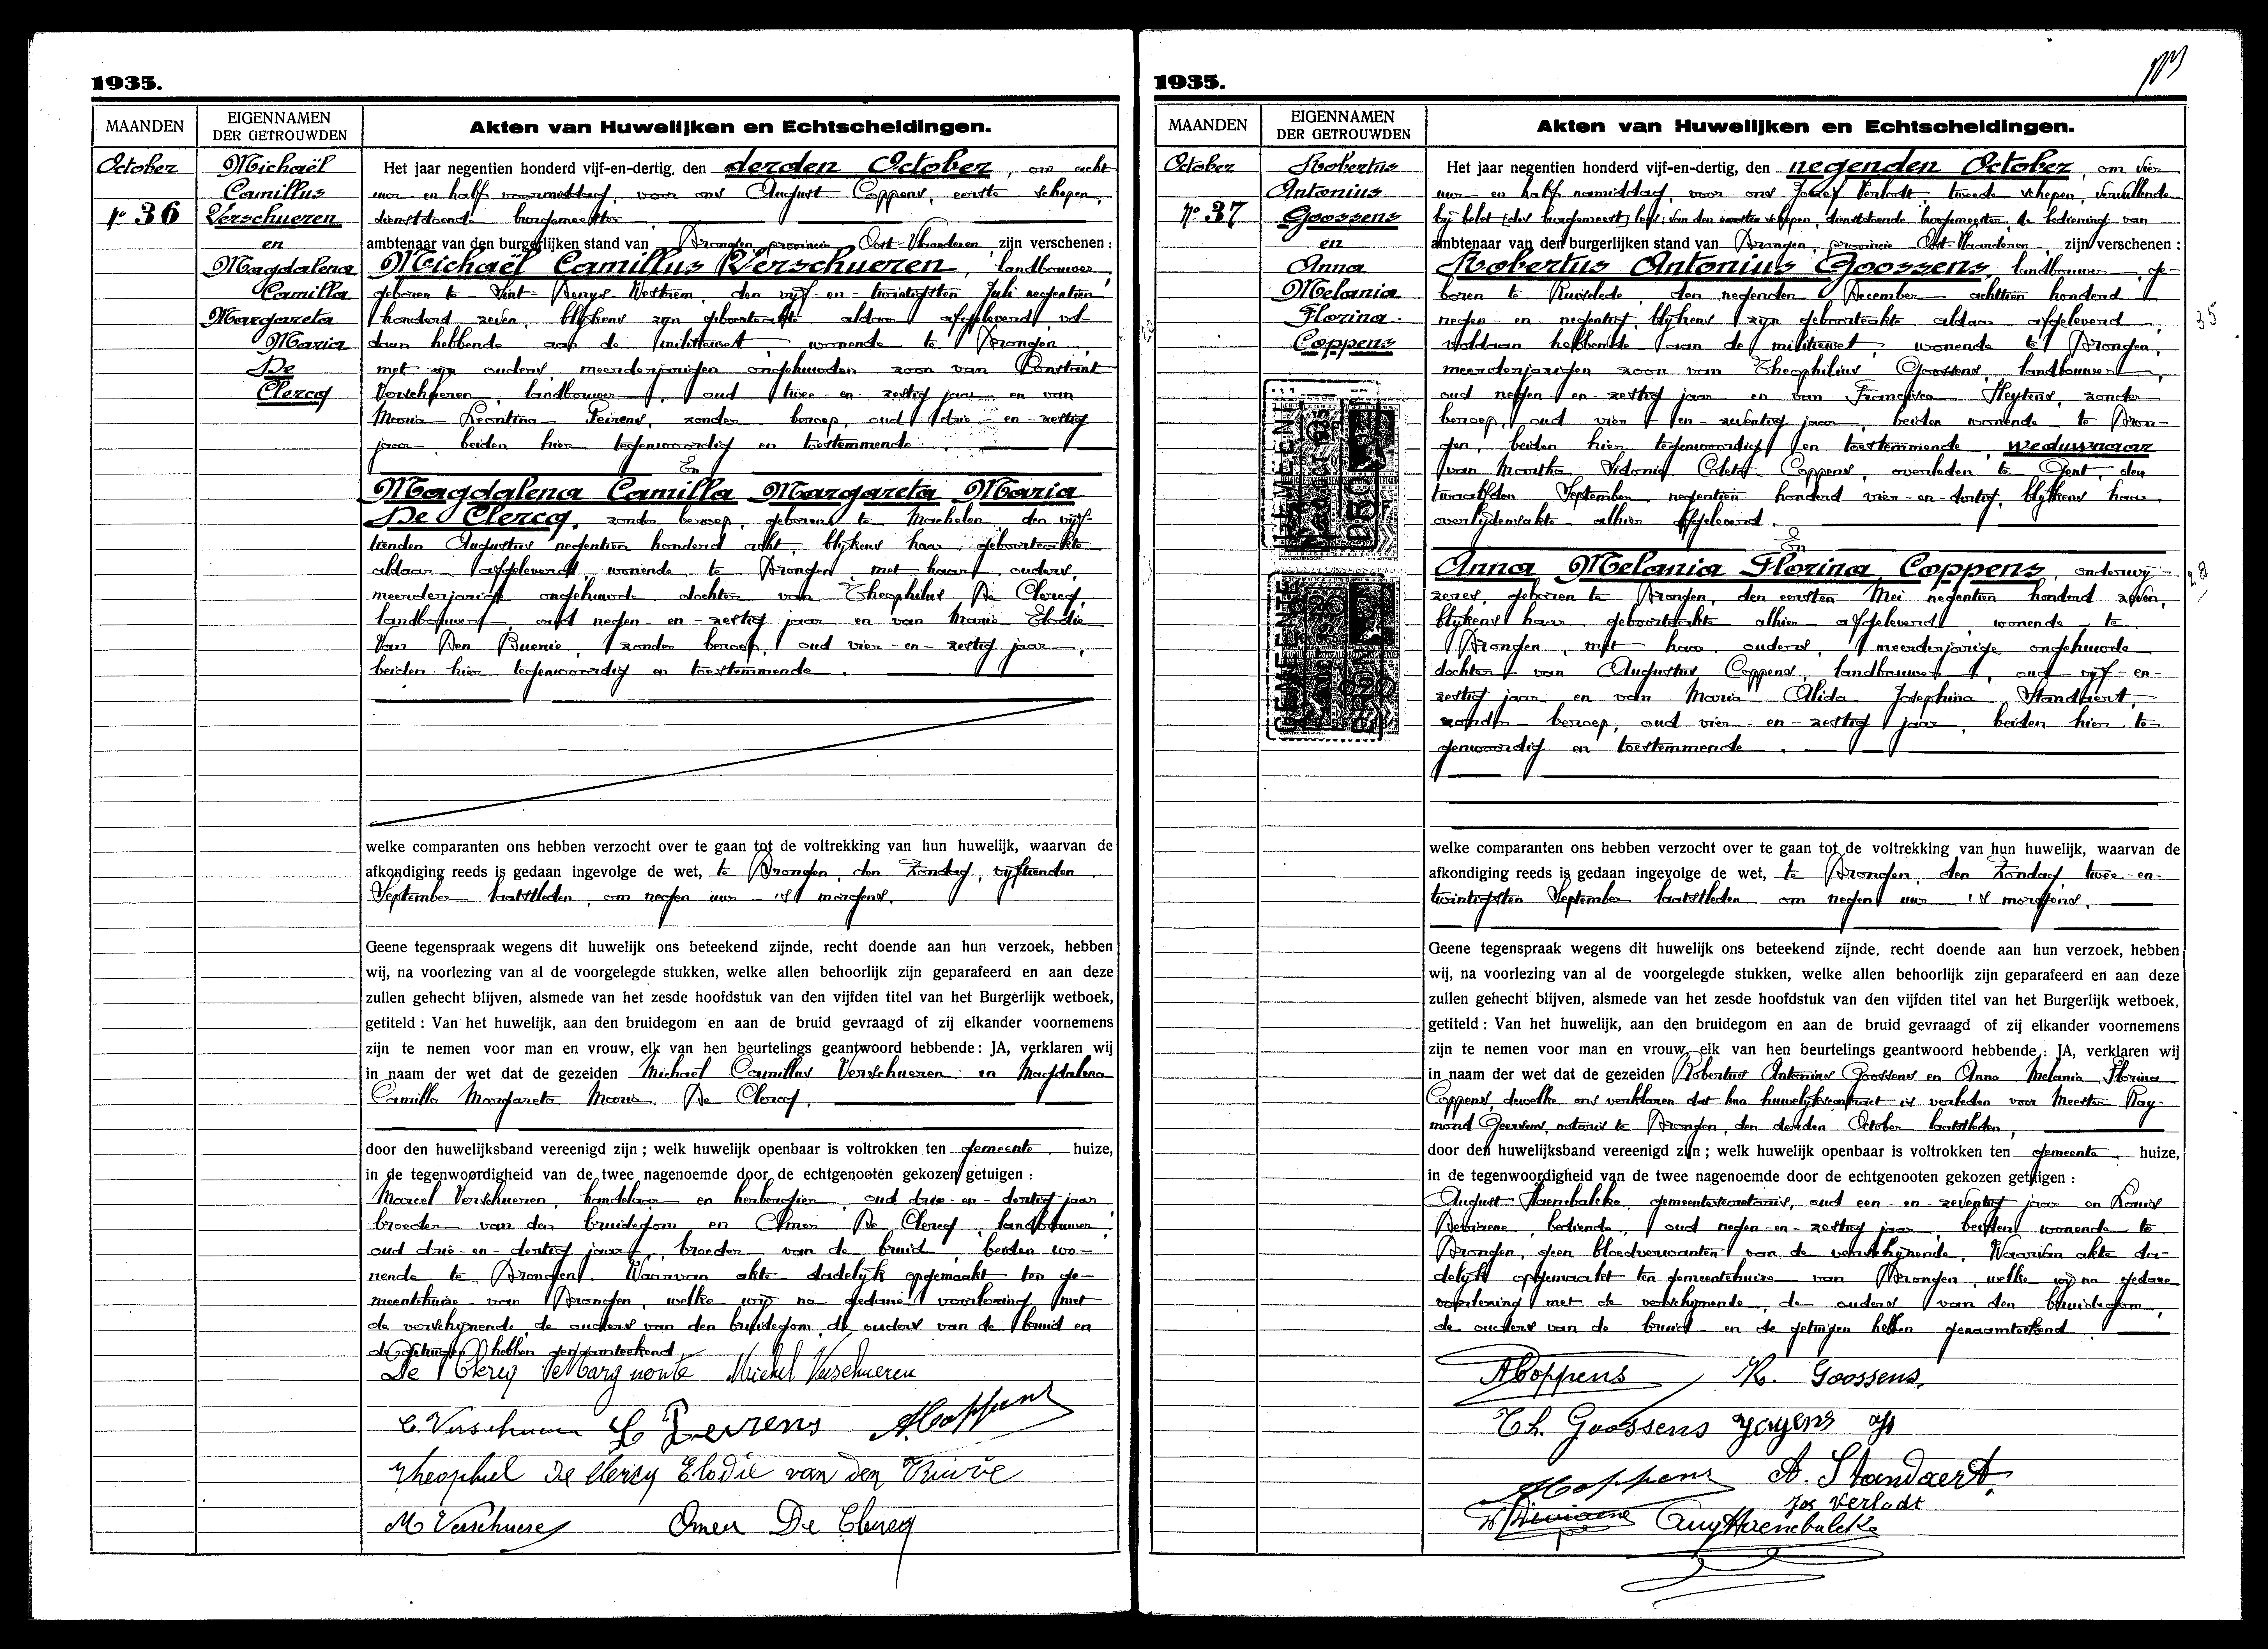 1935.
MAANDEN
EIGENNAMEN
DER GETROUWDEN
Akten van Huwelijken en Echtscheidingen.
October
No 36
Michaël
Camillus
Verschueren
en
Magdalena
Camilla
Margareta
Maria
De
Clercq
Het jaar negentien honderd vijf-en-dertig, den derden October, om acht
uur en half voormiddag, voor ons August Coppens, eerste schepen,
dienstdoende burgemeester
ambtenaar van den burgerlijken stand van Drongen, provincie Oost-Vlaanderen zijn verschenen :
Michaël Camillus Verschueren, landbouwer,
geboren te Sint-Denys-Westrem, den vijf-en-twintigsten Juli negentien
honderd zeven, blijkens zijn geboorteakte aldaar afgeleverd, vol-
daan hebbende aan de militiewet, wonende te Drongen,
met zijn ouders, meerderjarigen ongehuwden zoon van Constant
Verschueren, landbouwer, oud twee-en-zestig jaar en van
Maria Leontina Peirens, zonder beroep, oud drie-en-zestig
jaar, beiden hier tegenwoordig en toestemmende.
En
Magdalena Camilla Margareta Maria
De Clercq, zonder beroep, geboren te Machelen, den vijf-
tienden Augustus negentien honderd acht, blijkens haar geboorteakte
aldaar afgeleverd, wonende te Drongen, met haar ouders,
meerderjarige ongehuwde dochter van Theophilus De Clercq,
landbouwer, oud negen-en-zestig jaar en van Marie Elodie
Van Den Buerie, zonder beroep, oud vier-en-zestig jaar,
beiden hier tegenwoordig en toestemmende.
welke comparanten ons hebben verzocht over te gaan tot de voltrekking van hun huwelijk, waarvan de
afkondiging reeds is gedaan ingevolge de wet, te Drongen, den Zondag, vijftienden
September laatstleden, om negen uur 's morgens.
Geene tegenspraak wegens dit huwelijk ons beteekend zijnde, recht doende aan hun verzoek, hebben
wij, na voorlezing van al de voorgelegde stukken, welke allen behoorlijk zijn geparafeerd en aan deze
zullen gehecht blijven, alsmede van het zesde hoofdstuk van den vijfden titel van het Burgerlijk wetboek,
getiteld : Van het huwelijk, aan den bruidegom en aan de bruid gevraagd of zij elkander voornemens
zijn te nemen voor man en vrouw, elk van hen beurtelings geantwoord hebbende : JA, verklaren wij
in naam der wet dat de gezeiden Michaël Camillus Verschueren en Magdalena
Camilla Margareta Maria De Clercq,
door den huwelijksband vereenigd zijn ; welk huwelijk openbaar is voltrokken ten gemeente huize,
in de tegenwoordigheid van de twee nagenoemde door de echtgenooten gekozen getuigen :
Marcel Verschueren, handelaar en herbergier, oud drie-en-dertig jaar
broeder van den bruidegom en Omer De Clercq, landbouwer,
oud drie-en-dertig jaar, broeder van de bruid, beiden wo-
nende te Drongen. Waarvan akte dadelijk opgemaakt ten ge-
meentehuize van Drongen, welke wij na gedane voorlezing met
de verschijnende, de ouders van den bruidegom, de ouders van de bruid en
de getuigen hebben genaamteekend.
De Clercq Michel Verschueren
C. Verschueren L Peirens A. Coppens
Theophiel De Clercq Elodie van den
M Verschuere Omer De Clercq
1935.
MAANDEN
EIGENNAMEN
DER GETROUWDEN
Akten van Huwelijken en Echtscheidingen.
October
No 37
Robertus
Antonius
Goossens
en
Anna
Melania
Florina
Coppens
Het jaar negentien honderd vijf-en-dertig, den negenden October, om vier
uur en half namiddag, voor ons Jozef Verlodt, tweede schepen, vervullende
bij belet [des burgemeest] lees: van den eersten schepen, dienstdoende burgemeester, de bediening van
ambtenaar van den burgerlijken stand van Drongen, provincie Oost-Vlaanderen, zijn verschenen :
Robertus Antonius Goossens, landbouwer, ge-
boren te Ruiselede, den negenden December achttien honderd
negen-en-negentig, blijkens zijn geboorteakte aldaar afgeleverd,
voldaan hebbende aan de militiewet, wonende te Drongen,
meerderjarigen zoon van Theophilius Goossens, landbouwer,
oud negen-en-zestig jaar en van Francisca Heytens, zonder
beroep, oud vier-en-zeventig jaar, beiden wonende te Dron-
gen, beiden hier tegenwoordig en toestemmende, weduwnaar
van Martha Sidonia Coleta Coppens, overleden te Gent, den
twaalfden September negentien honderd vier-en-dertig, blijkens haar
overlijdensakte alhier afgeleverd.
En
Anna Melania Florina Coppens, onderwij-
zeres, geboren te Drongen, den eersten Mei negentien honderd zeven,
blijkens haar geboorteakte alhier afgeleverd, wonende te
Drongen, met haar ouders, meerderjarige ongehuwde
dochter van Augustus Coppens, landbouwer, oud vijf-en-
zestig jaar, en van Maria Alida Josephina Standaert,
zonder beroep, oud vier-en-zestig jaar, beiden hier te-
genwoordig en toestemmende.
35
28
welke comparanten ons hebben verzocht over te gaan tot de voltrekking van hun huwelijk, waarvan de
afkondiging reeds is gedaan ingevolge de wet, te Drongen, den Zondag, twee-en-
twintigsten September laatstleden om negen uur 's morgens.
Geene tegenspraak wegens dit huwelijk ons beteekend zijnde, recht doende aan hun verzoek, hebben
wij, na voorlezing van al de voorgelegde stukken, welke allen behoorlijk zijn geparafeerd en aan deze
zullen gehecht blijven, alsmede van het zesde hoofdstuk van den vijfden titel van het Burgerlijk wetboek,
getiteld : Van het huwelijk, aan den bruidegom en aan de bruid gevraagd of zij elkander voornemens
zijn te nemen voor man en vrouw, elk van hen beurtelings geantwoord hebbende : JA, verklaren wij
in naam der wet dat de gezeiden Robertus Antonius Goossens en Anna Melania Florina
Coppens, dewelke ons verklaren dat hun huwelijkscontract is verleden voor Meester Ray-
mond Geerens, notaris te Drongen, den derden October laatstleden,
door den huwelijksband vereenigd zijn ; welk huwelijk openbaar is voltrokken ten gemeente huize,
in de tegenwoordigheid van de twee nagenoemde door de echtgenooten gekozen getuigen :
August Haenebalcke, gemeentesecretaris, oud een-en-zeventig jaar en Louis
Deviaene, bediende, oud negen-en-zestig jaar, beiden wonende te
Drongen, geen bloedverwanten van de verschijnende. Waarvan akte da-
delijk opgemaakt ten gemeentehuize van Drongen, welke wij na gedane
voorlezing met de verschijnende, de ouders van den bruidegom,
de ouders van de bruid en de getuigen hebben genaamteekend.
A Coppens R. Goossens,
Th. Goossens
A Coppens A. Standaert
Jos Verlodt
Aug Haenebalcke